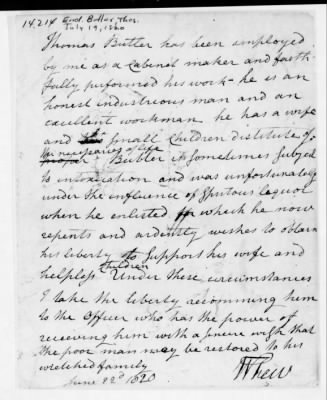 14,214 Encl. Butler, Thos.
July 19, 1820
Thomas Butler has been employed
by me as a Cabinet maker and faith
fully performed his work - he is an
honest industreous man and an
excellent workman he has a wife
and small Children distitute of
the necessaries of life
Butler is Sometimes Subject
to intoxication and was unfortunately
under the influence of Spiritous lequor
when he enlisted for which he now
repents and ardently wishes to obtain
his liberty to Support his wife and
children
helpless Under these circumstances
I take the liberty recomming him
to the Officer who has the power of
releeving him with a sincere wish that
the poor man may be restored to his
wretched family
June 22d 1820